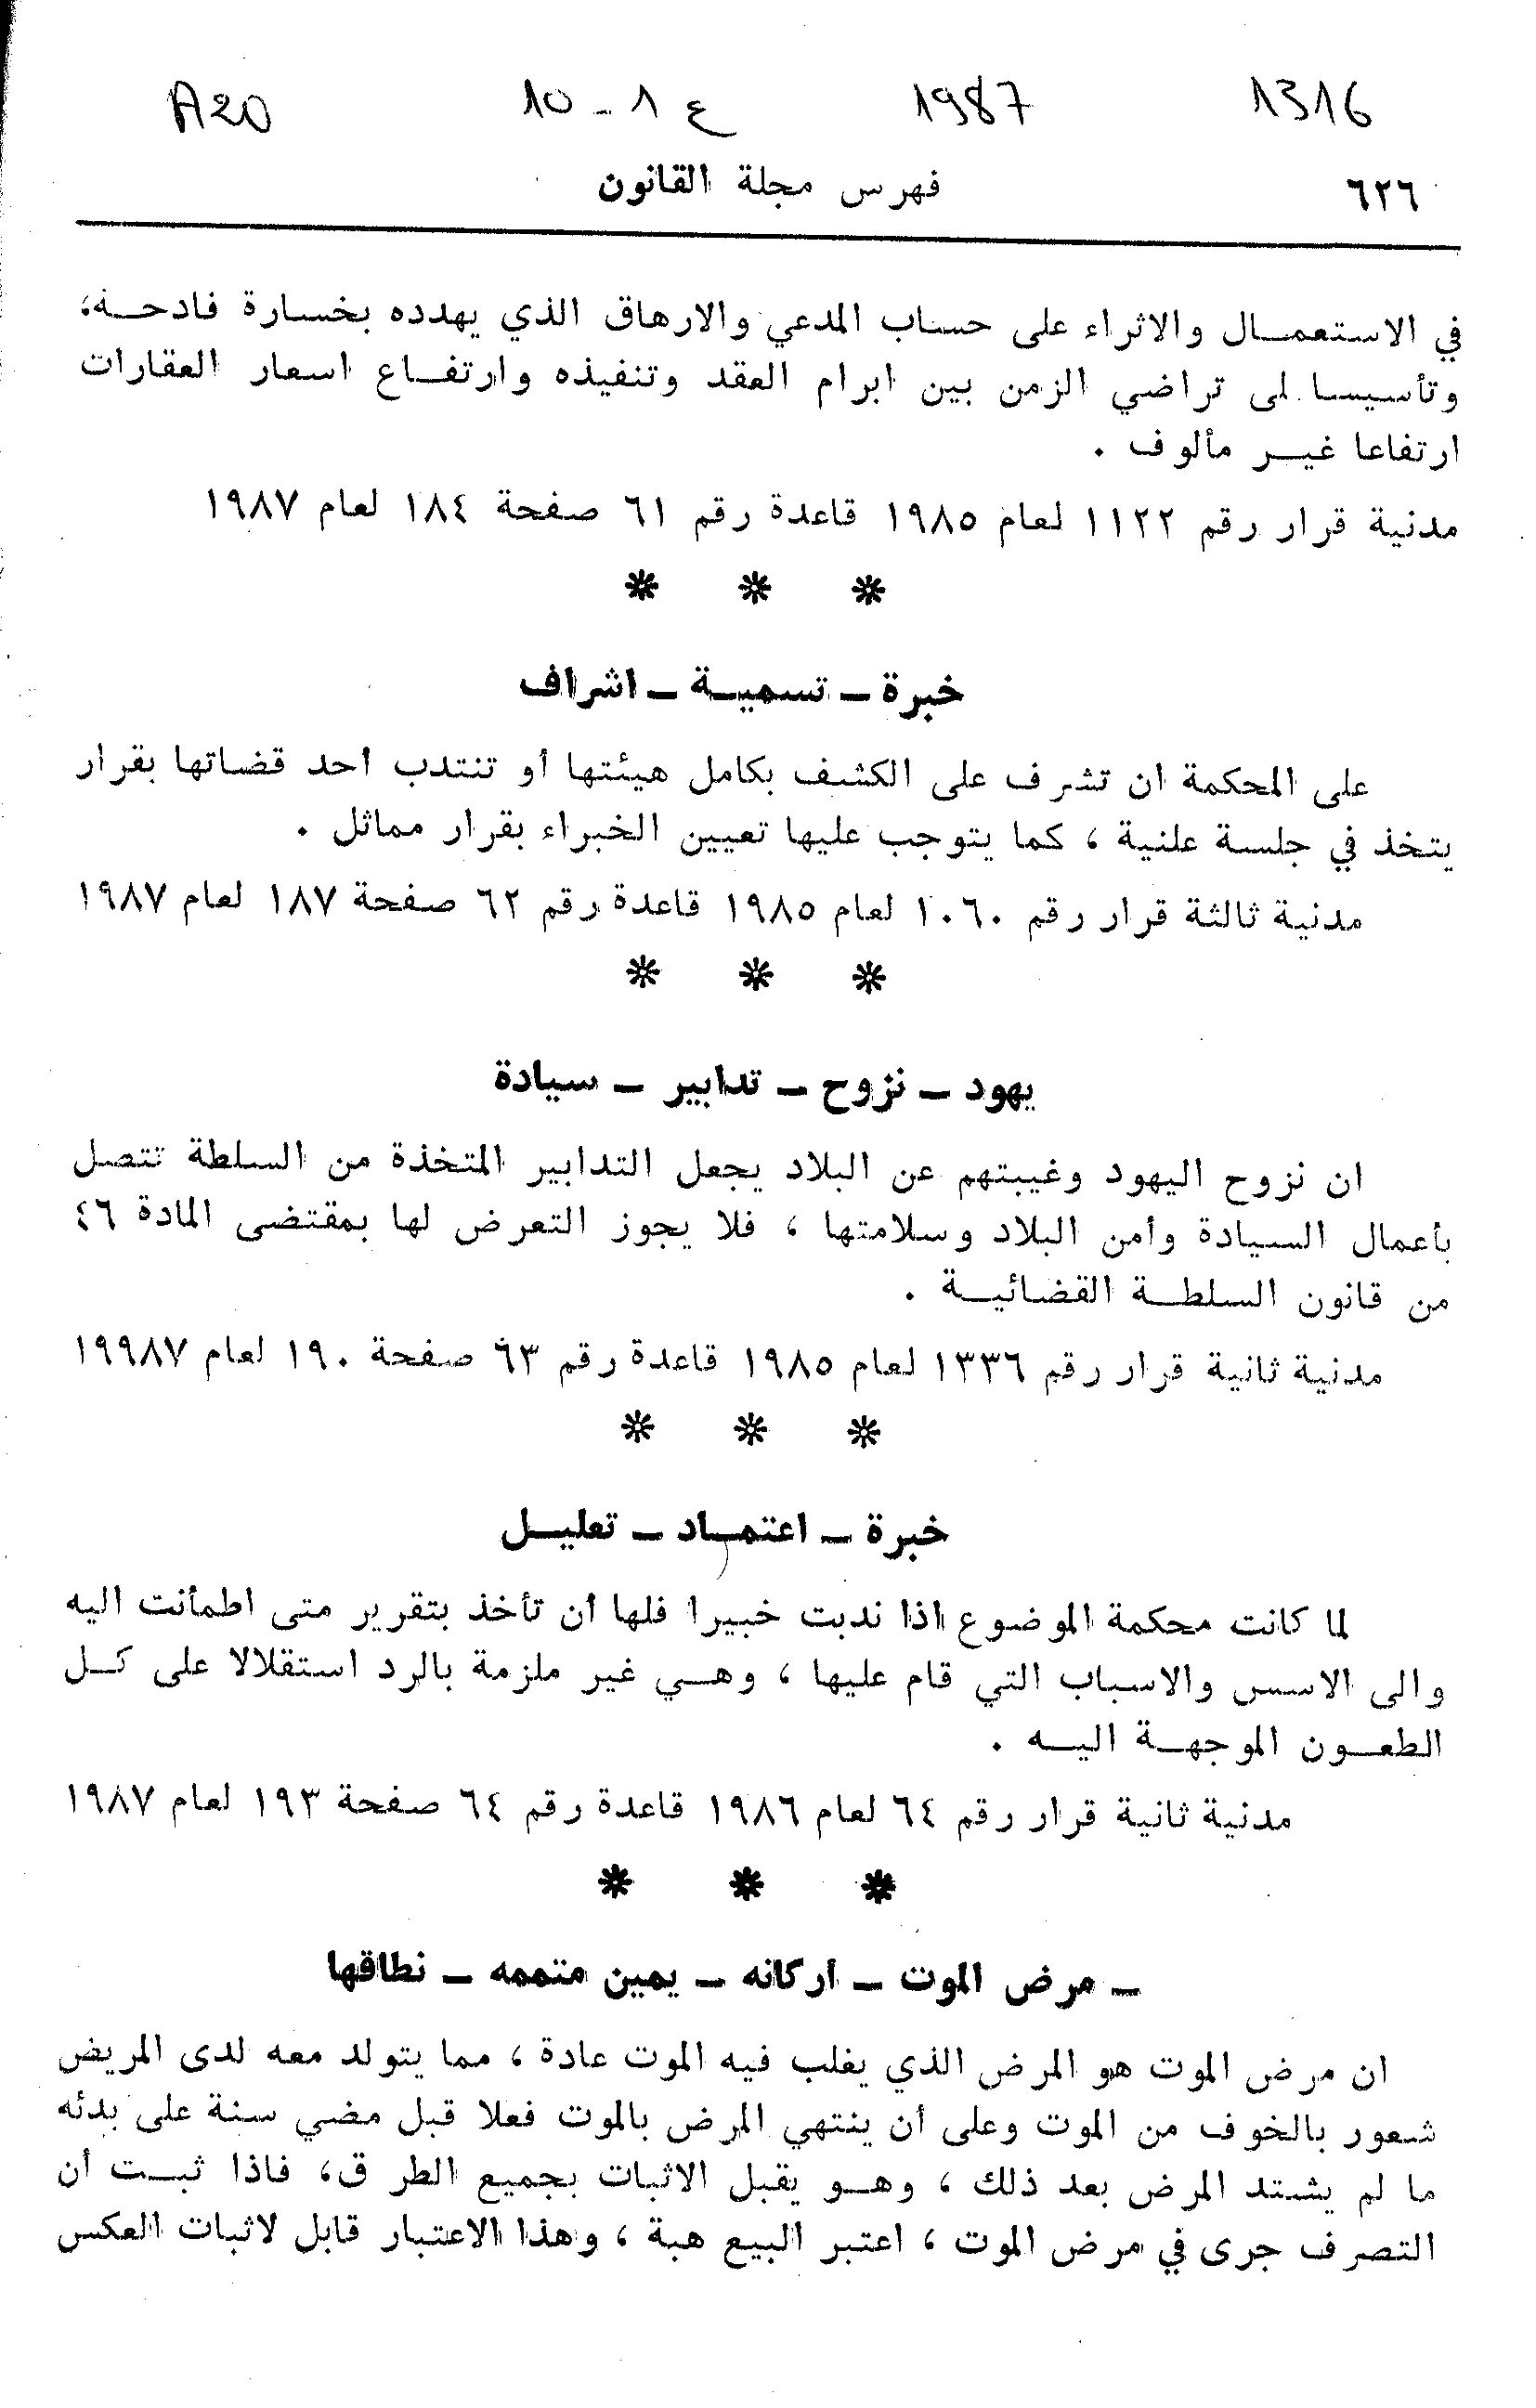 1316 1987 ع 1 - 10 A20
٦٢٦ فهرس مجلة القانون
في الاستعمــال والاثراء على حساب المدعي والارهاق الذي يهدده بخسارة فادحــة،
وتأسيسا لى تراضي الزمن بين ابرام العقد وتنفيذه وارتفــاع اسعار العقارات
ارتفاعا غيــر مألوف .
مدنية قرار رقم ١١٢٢ لعام ١٩٨٥ قاعدة رقم ٦١ صفحة ١٨٤ لعام ١٩٨٧
* * *
خبرة ــ تسميــة ــ اشراف
على المحكمة ان تشرف على الكشف بكامل هيئتها أو تنتدب أحد قضاتها بقرار
يتخذ في جلسة علنية ، كما يتوجب عليها تعيين الخبراء بقرار مماثل .
مدنية ثالثة قرار رقم ١٠٦٠ لعام ١٩٨٥ قاعدة رقم ٦٢ صفحة ١٨٧ لعام ١٩٨٧
* * *
يهود ــ نزوح ــ تدابير ــ سيادة
ان نزوح اليهود وغيبتهم عن البلاد يجعل التدابير المتخذة من السلطة تتصل
بأعمال السيادة وأمن البلاد وسلامتها ، فلا يجوز التعرض لها بمقتضى المادة ٤٦
من قانون السلطــة القضائيــة .
مدنية ثانية قرار رقم ١٣٣٦ لعام ١٩٨٥ قاعدة رقم ٦٣ صفحة ١٩٠ لعام ١٩٩٨٧
* * *
خبرة ــ اعتمــاد ــ تعليــل
لما كانت محكمة الموضوع اذا ندبت خبيرا فلها أن تأخذ بتقرير متى اطمأنت اليه
والى الاسس والاسباب التي قام عليها ، وهــي غير ملزمة بالرد استقلالا على كــل
الطعــون الموجهــة اليــه .
مدنية ثانية قرار رقم ٦٤ لعام ١٩٨٦ قاعدة رقم ٦٤ صفحة ١٩٣ لعام ١٩٨٧
* * *
ــ مرض الموت ــ أركانه ــ يمين متممه ــ نطاقها
ان مرض الموت هو المرض الذي يغلب فيه الموت عادة ، مما يتولد معه لدى المريض
شعور بالخوف من الموت وعلى أن ينتهي المرض بالموت فعلا قبل مضي سنة على بدئه
ما لم يشتد المرض بعد ذلك ، وهــو يقبل الاثبات بجميع الطر ق، فاذا ثبــت أن
التصرف جرى في مرض الموت ، اعتبر البيع هبة ، وهذا الاعتبار قابل لاثبات العكس